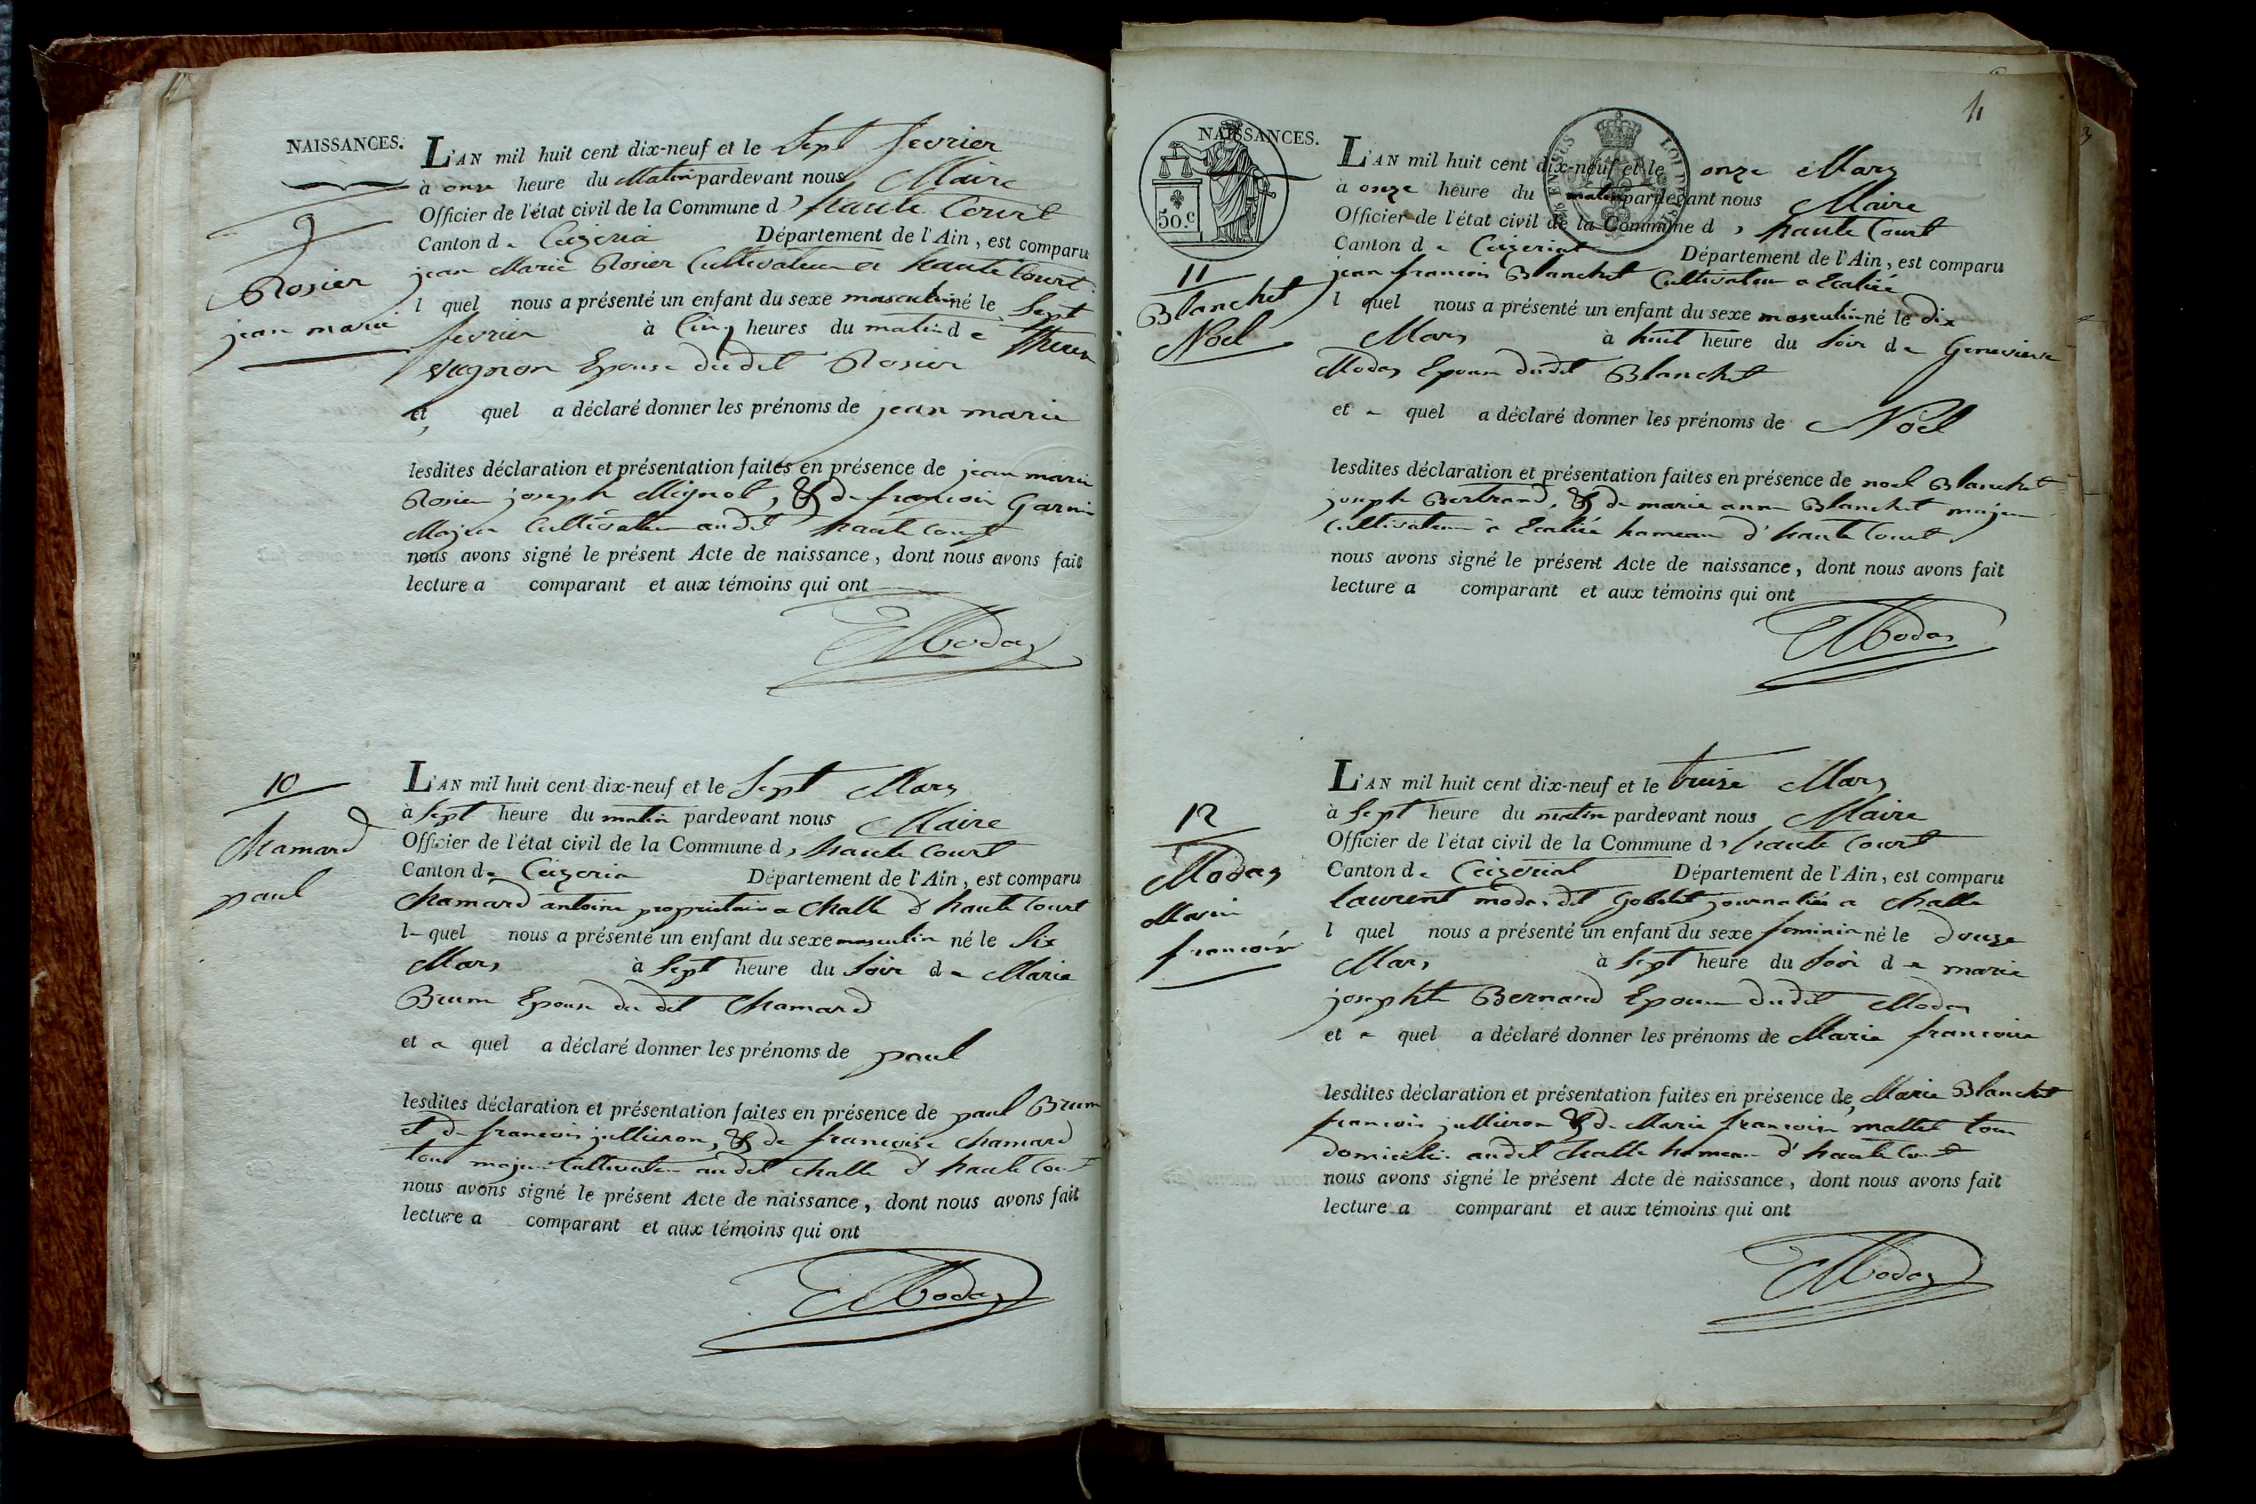 NAISSANCES.
9
Rosier
jean marie
L'AN mil huit cent dix-neuf et le Sept fevrier
à onze heure du Matin pardevant nous Maire
Officier de l'état civil de la Commune d' haute Court
Canton de Ceizeria Département de l'Ain, est comparu
jean Marie Rosier Cultivateur a haute Court
l quel nous a présenté un enfant du sexe masculin né le Sept
fevrier à Cinq heures du matin de
Epouse dudit Rosier
et quel a déclaré donner les prénoms de jean marie
lesdites déclaration et présentation faites en présence de jean marie
Rosier joseph Mignot, & de francois Garnie
Majeu Cultivateur audit haute Court
nous avons signé le présent Acte de naissance, dont nous avons fait
lecture a comparant et aux témoins qui ont
Modas
10
Chamard
paul
L'AN mil huit cent dix-neuf et le Sept Mars
à Sept heure du matin pardevant nous Maire
Officier de l'état civil de la Commune d' haute Court
Canton de Ceizeria Département de l'Ain, est comparu
Chamard antoine proprietaire a Challe d'haute Court
le quel nous a présenté un enfant du sexe masculin né le Six
Mars à Sept heure du Soir de Marie
Brum Epouse du dit Chamard
et a quel a déclaré donner les prénoms de paul
lesdites déclaration et présentation faites en présence de paul Brum
et de francois jullieron, & de francoise Chamard
tous majeur Cultivateur audit Challe d'haute Court
nous avons signé le présent Acte de naissance, dont nous avons fait
lecture a comparant et aux témoins qui ont
Modas
4
NAISSANCES.
50.c
11
Blanchet
Noel
L'AN mil huit cent dix-neuf et le onze Mars
à onze heure du matin pardevant nous Maire
Officier de l'état civil de la Commune d' haute Court
Canton de Ceizeriat Département de l'Ain, est comparu
jean francois Blanchet Cultivateur a
l quel nous a présenté un enfant du sexe masculin né le dix
Mars à huit heure du Soir de Genevieve
Modas Epouse dudit Blanchet
et a quel a déclaré donner les prénoms de Noel
lesdites déclaration et présentation faites en présence de noel Blanchet
joseph Bertrand, & de marie anne Blanchet majeur
Cultivateur à hameau d'haute Court
nous avons signé le présent Acte de naissance, dont nous avons fait
lecture a comparant et aux témoins qui ont
Modas
12
Modas
Marie
francoise
L'AN mil huit cent dix-neuf et le treize Mars
à Sept heure du matin pardevant nous Maire
Officier de l'état civil de la Commune d' haute Court
Canton de Ceizeriat Département de l'Ain, est comparu
laurent modas dit Gobelet journalier a Challe
l quel nous a présenté un enfant du sexe feminin né le douze
Mars à Sept heure du Soir de marie
josephte Bernard Epouse dudit Modas
et a quel a déclaré donner les prénoms de Marie francoise
lesdites déclaration et présentation faites en présence de Marie Blanchet
francois jullieron & de Marie francoise mallet tous
domicilié audit Challe hameau d'haute Court
nous avons signé le présent Acte de naissance, dont nous avons fait
lecture a comparant et aux témoins qui ont
Modas